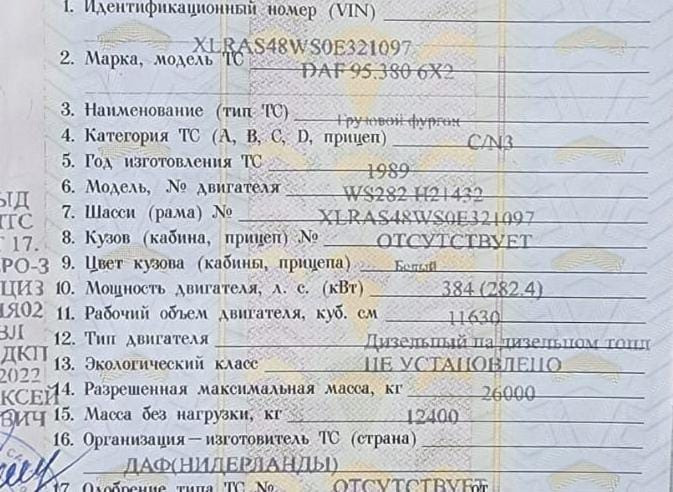 1. Идентификационный номер (VIN)
XLRAS48WS0E321097
2. Марка, модель ТС DAF 95.380 6X2
3. Наименование (тип ТС) Грузовой фургон
4. Категория ТС (A, B, C, D, прицеп) C/N3
5. Год изготовления ТС 1989
6. Модель, № двигателя WS282 H21432
7. Шасси (рама) № XLRAS48WS0E321097
8. Кузов (кабина, прицеп) № ОТСУТСТВУЕТ
9. Цвет кузова (кабины, прицепа) Белый
10. Мощность двигателя, л. с. (кВт) 384 (282.4)
11. Рабочий объем двигателя, куб. см 11630
12. Тип двигателя Дизельный на дизельном топл
13. Экологический класс НЕ УСТАНОВЛЕНО
14. Разрешенная максимальная масса, кг 26000
15. Масса без нагрузки, кг 12400
16. Организация—изготовитель ТС (страна)
ДАФ(НИДЕРЛАНДЫ)
17. Одобрение типа ТС № ОТСУТСТВУЕТ от
ЫД
ПТС
17.
РО-3
ЦИЗ
ЛЯ02
ВЛ
ДКП
2022
КСЕЙ
ВИЧ